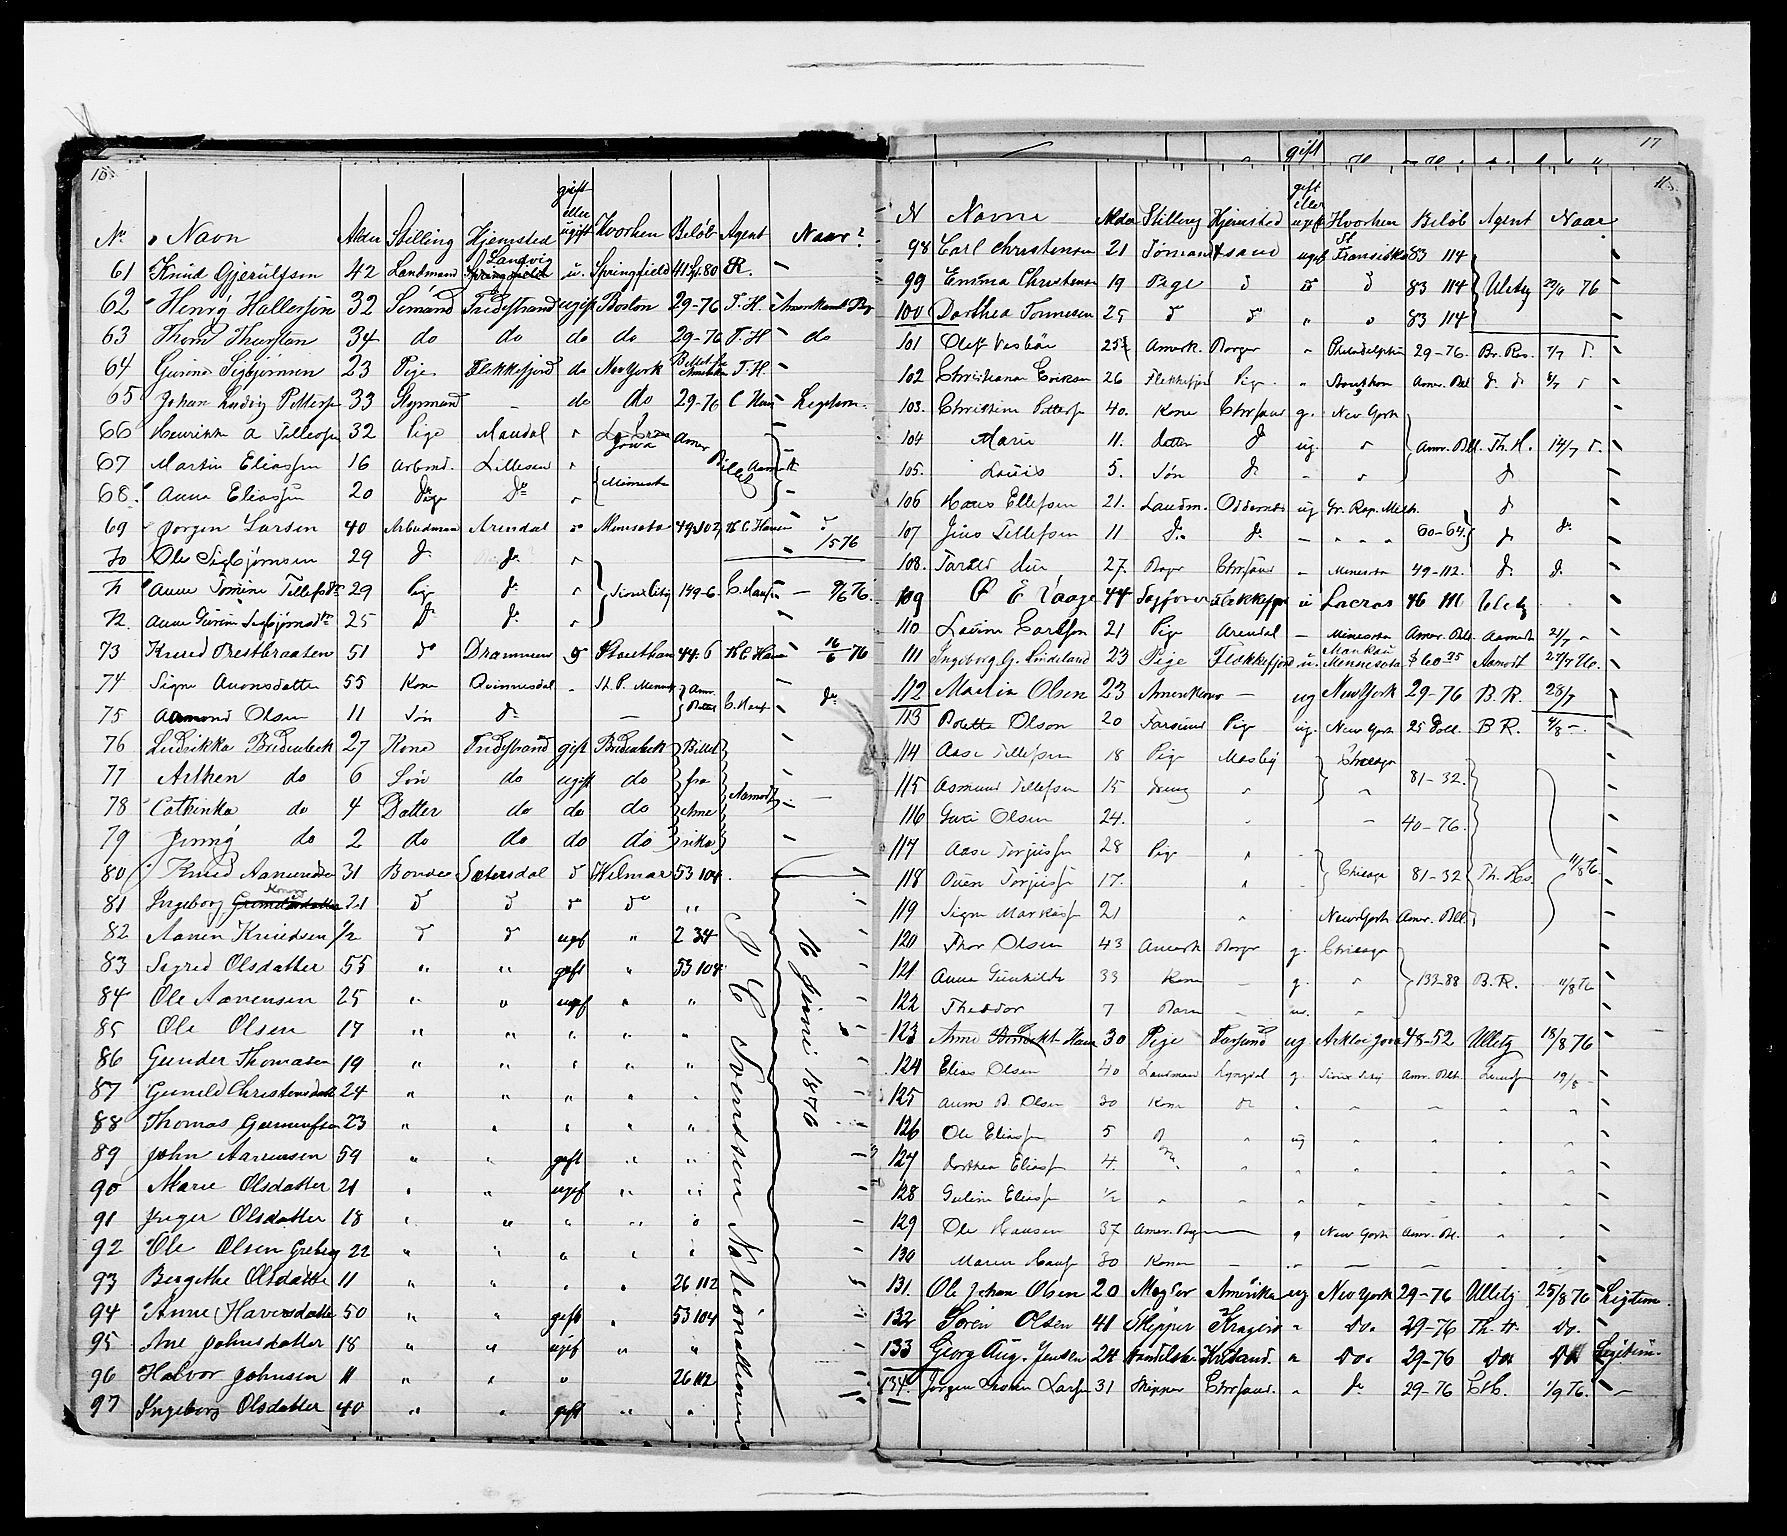 16.
No. Navn Alder Stilling Hjemsted gift eller ugift Hvorhen Beløb Agent Naar?
61 Knud Gjerulfsen 42 Landmand Landvig u. Springfield 41 80 R.
62 Henry Hallersen 32 Sømand Tvedestrand ugift Boston 29-76 T. H. Amerikansk Bog
63 Thom Thurstan 34 do do do do 29-76 T. H do
64 Gurine Sigbjørnsen 23 Pige Flekkefjord do New York T. H.
65 Johan Ludvig Petters 33 Styrmand - do do 29-76 C Hans Legitim.
66 Henrikke A Tellefsen 32 Pige Mandal Iowa Amer
67 Martin Eliassen 16 Arbmd. Lillesan Billet Aamodt
68. Anne Eliassen 20 Pige do Minnesota
69 Jørgen Larsen 40 Arbudmann Arendal Minesota 49 102 H C Hansen 1/5 76
70 Ole Sigbjørnsen 29 do do
71 Anne Tomine Tellefsdtr 29 Pige do Sioux City 149-6. C. Hansen - 9/6 76.
72. Anne Gurine Sigbjørnsdtr 25 do do
73 Knud Brestbraaten 51 do Drammen g Stouthan 44.6 H C Hans 16/6 76
74 Signe Aaonsdatter 55 Kone Qvinnesdal St. P. Menesot Amr. Billet C. Hans do
75 Aamond Olsen 11 Søn do -
76 Ludvikka Bridenbeck 27 Kone Tvedestrand gift Bridenbeck Billet
77 Arthen do 6 Søn do ugift do fra
78 Cathinka do 4 Datter do do do Ame Aamodt
79 Jenny do 2 do do do do rika
80 Knud Aanundsen 31 Bonde Sætersdal do Wilmar 53 104
81 Ingeborg 21 do do do do "
82 Aanen Knudsen 1/2 do do ugif " 2 34
83 Sigred Olsdatter 55 " " gift " 53 104
84 Ole Aanensen 25 " " ugif " "
85 Ole Olsen 17 " " " " "
86 Gunder Thomasen 19 " " " " "
87 Gunild Christensdatt 24 " " " " "
88 Thomas Gunnufsen 23 " " " " "
89 John Aanensen 59 " " gift " "
90 Marie Olsdatter 21 " " ugif " "
91 Inger Olsdatter 18 " " " " "
92 Ole Olsen Greberg 22 " " " " "
93 Bergithe Olsdatter 11 " " " " 26 112
94 Anne Haversdatter 50 " " gift " 53 104
95 Ane Johnsdatter 18 " " ugif " "
96 Halvor Johnsen 11 " " " 26 112
97 Ingeborg Olsdatter 40 " " gift " "
P C Svendsen Nationallinien
16 Juni 1876
17
gift
11
N Navne Alder Stilling Hjemsted gift eller ugift Hvorhen Beløb Agent Naar
98 Carl Christensen 21 Tømand sand ugif St Fransisko 83 114
99 Emma Christensen 19 Pige do do do 83 114 Ulety 29/6 76
100 Dorthea Tønnesen 25 do do " " 83 114
101 Oluf Vesbør 25 Amerk. Borger " Philadelphia 29-76. Br. Ras. 7/7 do.
102 Christiana Eriksen 26 Flekkefjor Pige " Amr. Bill do do 8/7 do
103. Christine Petters 40. Kone Chrsand g. New York
104 Marie 11. datter do ug. " Amr. Bill. Th. H. 14/7 do.
105. Louis 5. Søn do - " do
106 Hans Ellefsen 21. Landm. Oddernes ug Gr. Rap. Mich. do
107 Jens Tellefsen 11 do do - " " " 60-64. do do
108. Tarald 27. Borger Chrsand - Minesota 49-112. do do
109 O E Vaage 44 Sagfører Flekkefjor u Lacros 46 111 Ulety
110 Laurine Carlsen 21 Pige Arendal - Minesota Amer. Bill. Aamodt 21/7 -
111 Ingeborg G. Lindeland 23 Pige Flekkefjord u. Mankau Mennesota $60 35 Aamodt 24/7 76.
112 Martin Olsen 23 Amerikaner - ug New York 29-76 B. R. 28/7
113 Bolette Olson 20 Farsund Pige ug. New York 25 Doll. B R. 4/8 -.
114 Aase Tellefsen 18 Pige Mosby Chicago
115 Asmund Tellefsen 15 Dreng " " 81-32.
116 Guri Olsen 24. " - 40-76.
117 Aase Torjusse 28 Pige "
118 Ouen Torjuss 17. " Chicago 81-32 Th. Hs. 11/8 76.
119 Signe Markuss 21 " New York Amr. Bill
120 Thor Olsen 43 Amerk Borger g. Chicago
121 Anne Gunhilde 33 Kone - g. " 132-88 B. R. 11/8 76
122 Theodor 7 Barn - u. "
123 Anne Hans 30 Pige Farsund ug Arkloe Jova 48-52 Ulletz 18/8 76
124 Elias Olsen 40 Landmand Lyngdal g. Sioux City Amr. Blt. 19/8 -
125 Anne B. Olsen 30 Kone do " " " " "
126 Ole Eliass 5 " ug " " " "
127 Dorthea Eliass 4. " " " " " "
128 Guline Eliass 1/2 " " " " " "
129 Ole Hansen 37 Amer. Borg - g New York Amr. Bl. " "
130 Maren Hans 30 Konen - " - - " "
131. Ole Johan Olsen 20 Mægler Amerika ug New York 29-76 Ulletz 25/8 76 Legtim
132 Søren Olsen 41 Skipper Kragerø " Do. 29-76 Th. H. Do.
133 Georg Aug. Jensen 24 Handelsbe Krsand. " Do. 29-76 Do Do Legitim.
134. Jørgen Larsen 31 Skipper Chrsand. " do 29-76 CH. 1/9 76. -